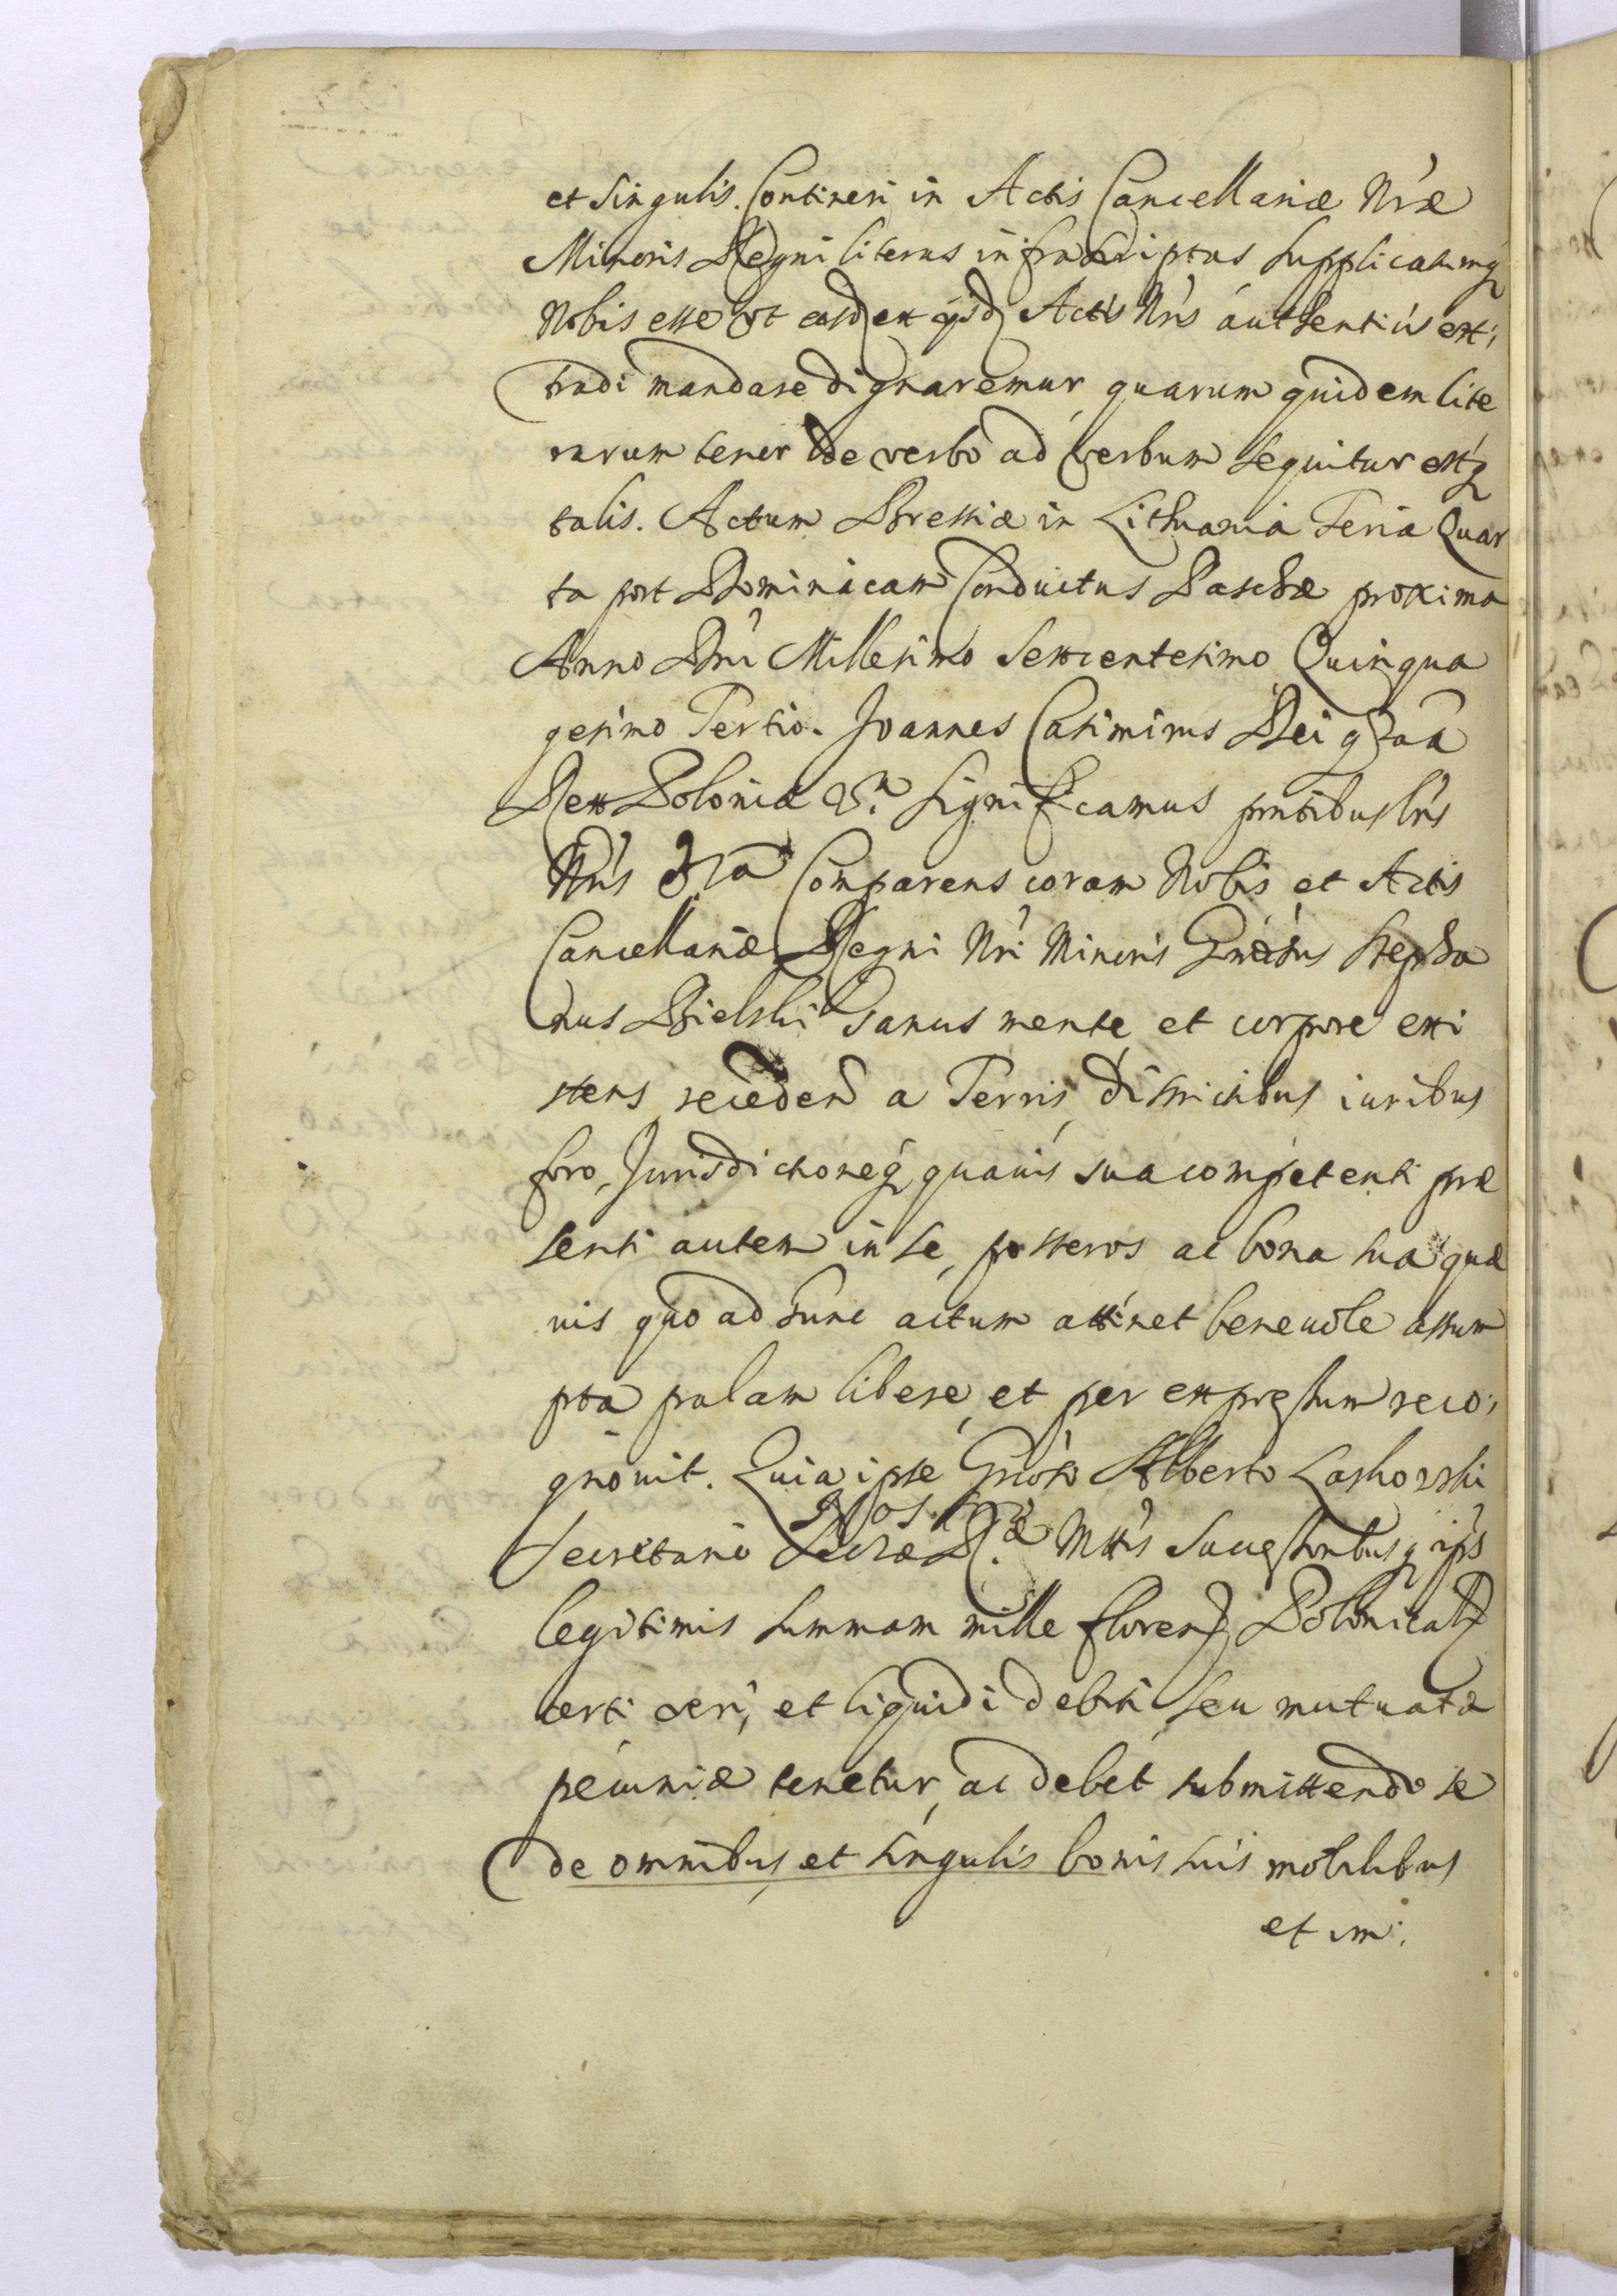 et singulis. Contineri in Actis Cancellariæ Nr̃æ
Minoris Regni literas infrascriptas supplicatumq
Nobis esse ut easd ex ijsd Actis Nr̃is authenticis ex
tradi mandare dignaremur quarum quidem lite
rarum tenor de verbo ad verbum sequitur estq
talis. Actum Brestiæ in Lithuania Feria Quar
ta post Dominicam Conductus Paschæ proxima
Anno Dnĩ Millesimo Sexcentesimo Quinqua
gesimo Tertio. Joannes Casimirus Dei gr̃aã
Rex Poloniæ &c. Significamus pntibus lr̃is
Nr̃is Comparens coram Nobis et Actis
Cancellariæ Regni Nr̃i Minoris Gnẽrosus Stepha
nus Bielski sanus mente et corpore exi
stens, recedeñ a Terris, districtibus iuribus
foro, Jurisdictioneq quavis sua competenti præ
senti autem in se, posteros ac bona sua quæ
uis quo ad hunc actum attinet beneuole assum
pta palam libere, et per expressum reco,
gnouit. Quia ipse Gnoso Alberto Laskowski
Secretario Sacræ R. Mttis Successoribusq ip̃s
legitimis summam mille floren Polonical
certi veri, et liquidi debiti seu mutuatæ
pecuniæ tenetur, ac debet submittendo se
de omnibus, et singulis bonis suis mobilibus
et im: